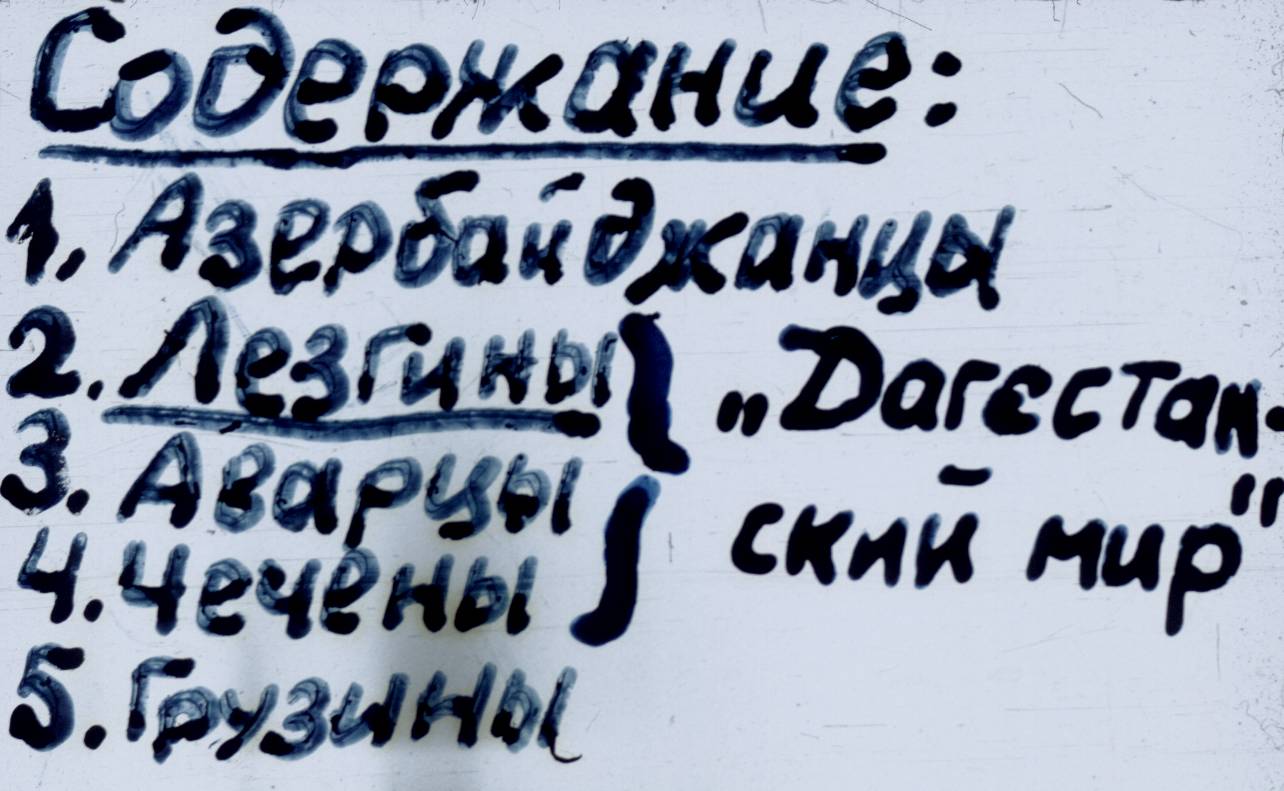 Содержание:
1. Азербайджанцы
2. Лезгины
3. Аварцы
4. Чечены
5. Грузины
„Дагестан-
ский мир"